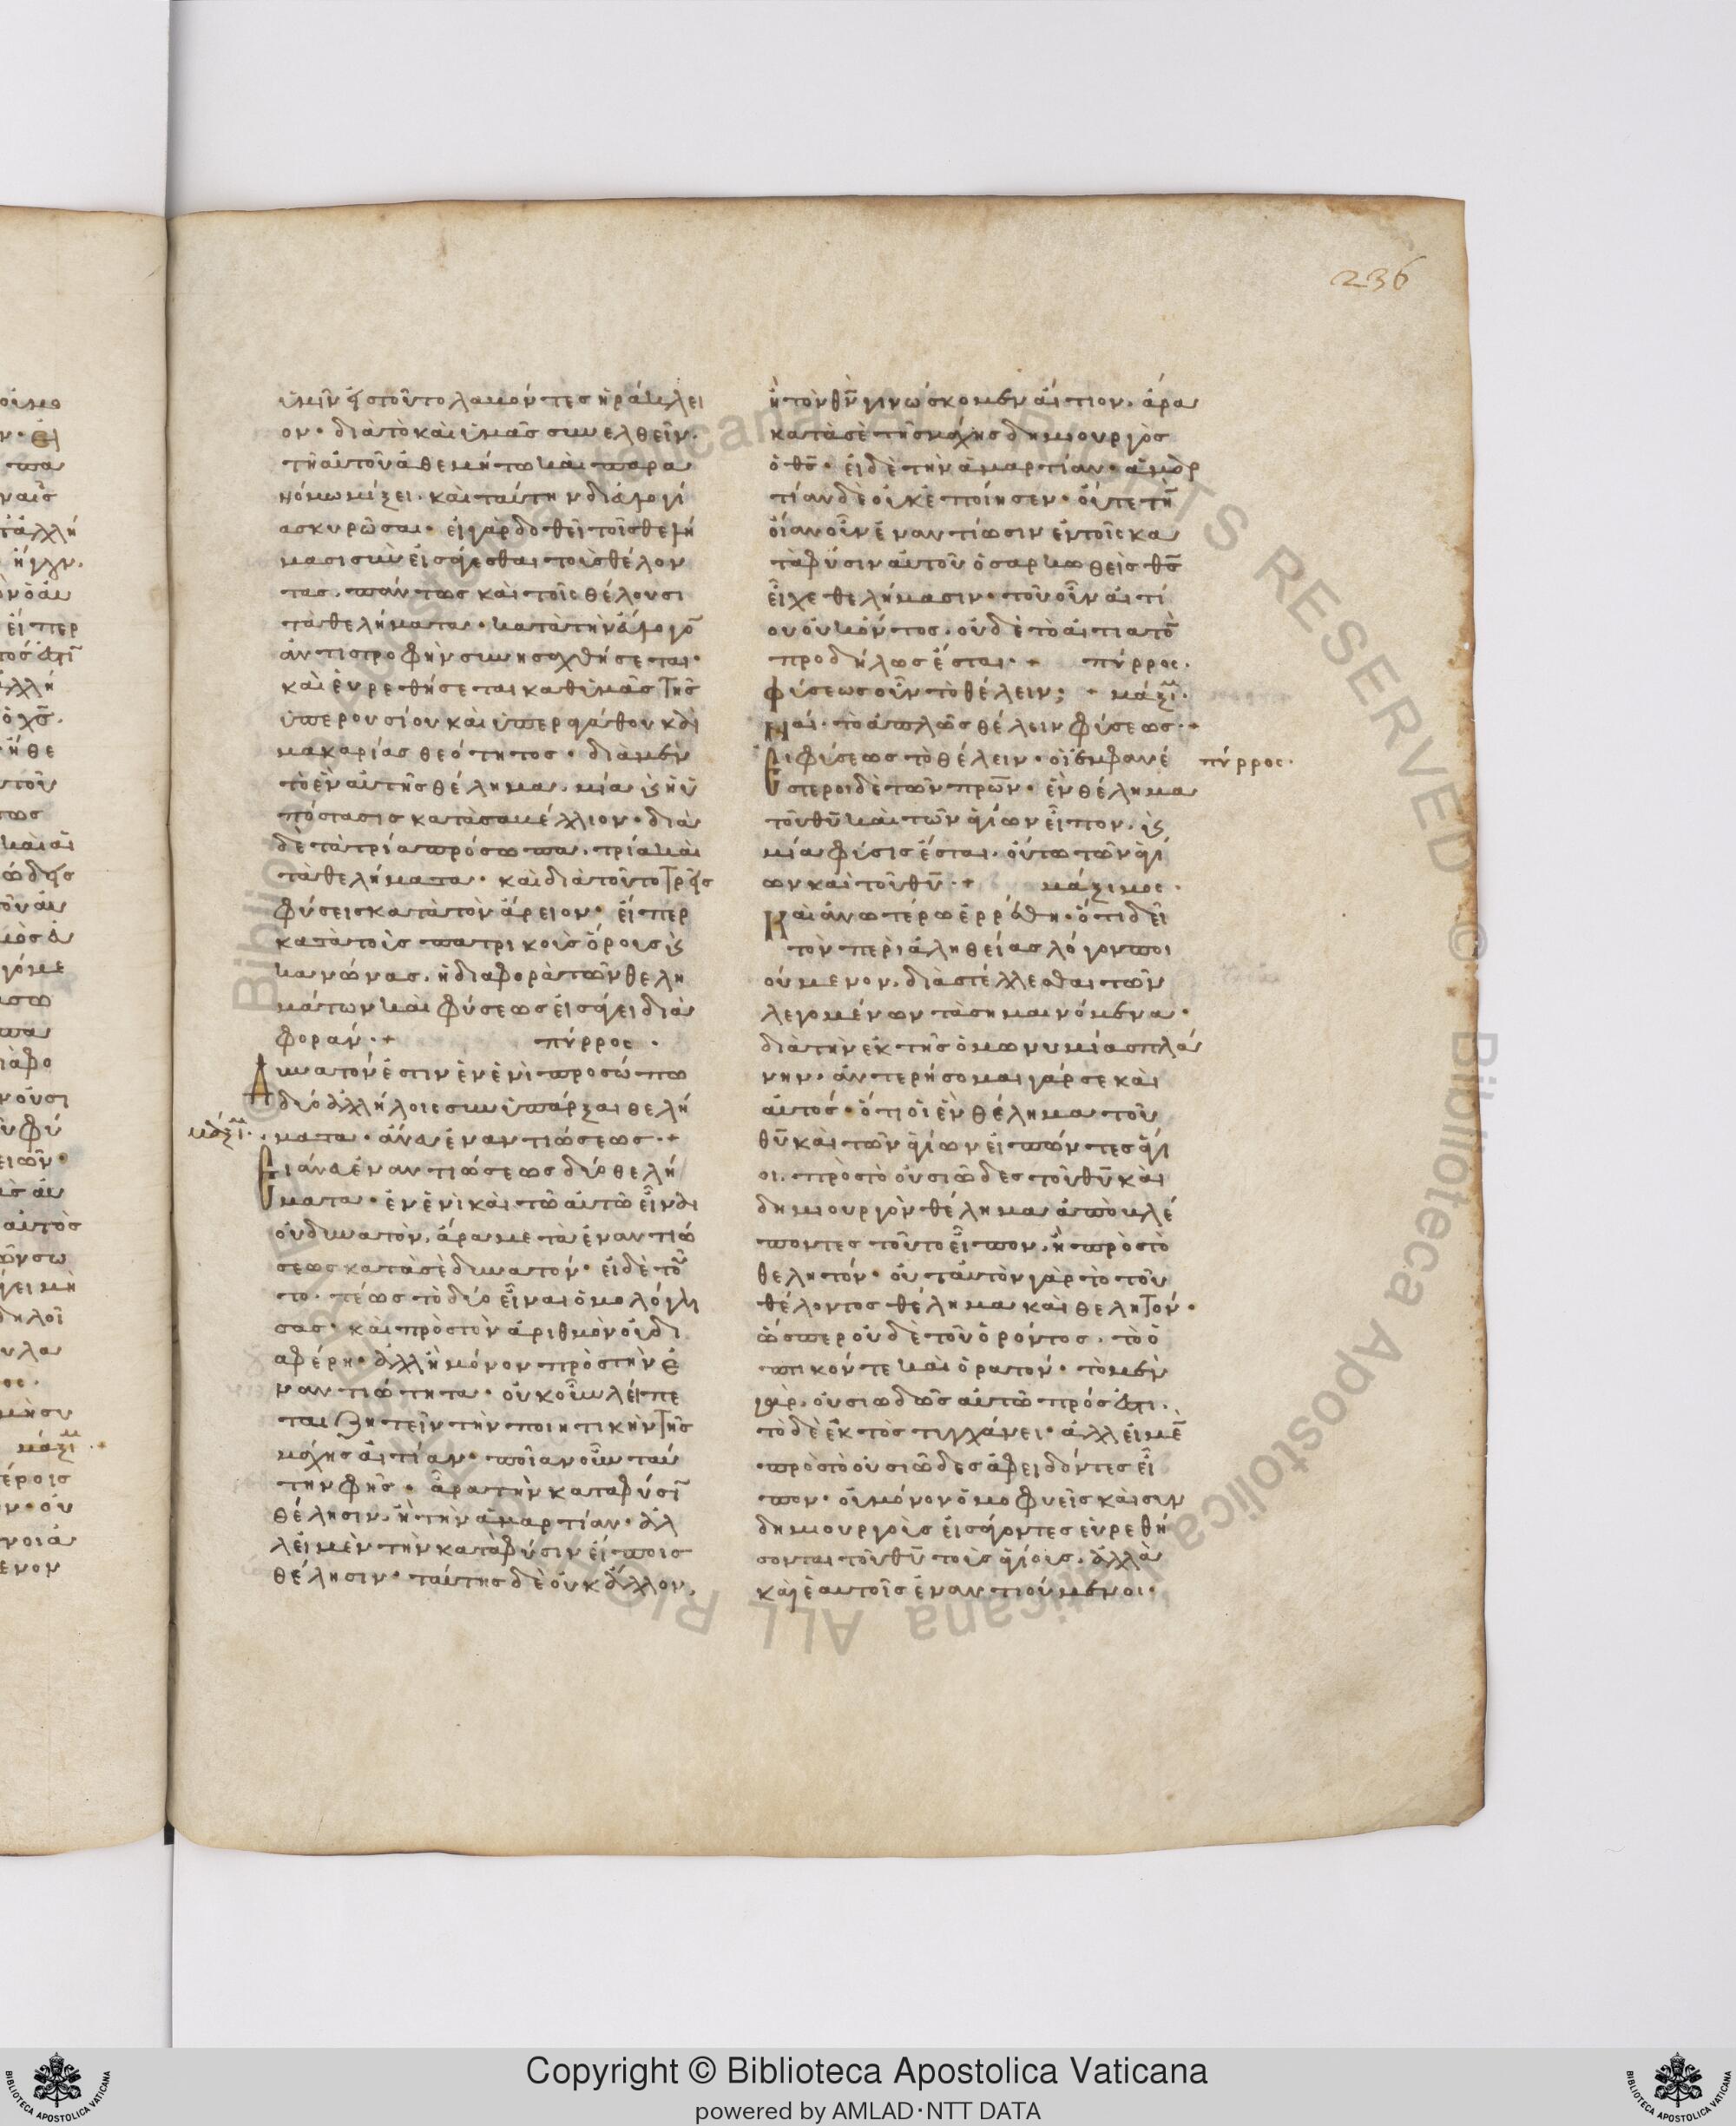 236
ὑμῖν ἐκ τοῦτο λαμόντες ἠράκλει
ον· διὰ τὸ καὶ ὑμᾶς συνελθεῖν.
τῆ αὐτοῦ ἀθεμήτω καὶ παρα
νόμω μίξει· καὶ ταύτην διάλογί
ας κυρῶσαι· εἰ γὰρ δοθεῖ τοῖς θελή
μασι συνεισάγεσθαι τοὺς θέλον
τας. πάντως καὶ τοῖς θέλουσι
τὰ θελήματα· κατὰ τὴν ἀλογο̄
ἀντιστροφὴν συνησαχθήσεται·
καὶ εὑρεθήσεται καθ' ὑμᾶς τῆς
ὑπερουσίου καὶ ὑπεραγάθου καὶ
μακαρίας θεότητος· διὰ μὲν
τὸ ἓν αὐτῆς θέλημα. μία κ(αὶ) ἡ ὑ
πόστασις κατὰ σαμέλλιον· διὰ
δὲ τὰ τρία πρόσωπα. τρία καὶ
τὰ θελήματα· καὶ διὰ τοῦτο τρεῖς
φύσεις κατὰ τὸν ἄρειον· εἴπερ
κατὰ τοὺς πατρικοὺς ὅρους κ(αὶ)
κανόνας. ἡ διαφορὰ τῶν θελη
μάτων καὶ φύσεως εἰσάγει δια
φοράν·+ πύρρος·
Δυνατόν ἐστιν ἐν ἑνὶ προσώπω
δύο ἀλλήλοις συνυπάρξαι θελή
μάξι̅·
ματα· ἄνευ ἐναντιώσεως·+
Εἰ ἄνευ ἐναντιώσεως δύο θελή
ματα· ἐν ἑνὶ καὶ τῶ αὐτῶ εἶναι
οὐ δυνατὸν. ἄρα μετὰ ἐναντιώ
σεως κατὰ σὲ δυνατόν· εἰ δὲ τοῦ
το. τέως τὸ δύο εἶναι ὁμολόγη
σας· καὶ πρὸς τὸν ἀριθμὸν οὐ δι
αφέρη· ἀλλ' ἢ μόνον πρὸς τὴν ἐ
ναντιότητα· οὐκοῦν λείπε
ται ζητεῖν τὴν ποιητικὴν τῆς
μάχης αἰτίαν· ποῖαν οὖν ταύ
την φῆς· ἆρα τὴν κατὰ φύσῑ
θέλησιν. ἢ τὴν ἁμαρτίαν· ἀλ
λ' εἰ μὲν τὴν κατὰ φύσιν εἴποις
θέλησιν· ταύτης δὲ οὐκ ἄλλον.
ἢ τὸν θν̅ γινώσκομεν αἴτιον. ἄρα
κατὰ σὲ τῆς μάχης δημιουργὸς
ὁ θς̅· εἰ δὲ τὴν ἁμαρτίαν· ἁμαρ
τίαν δὲ οὐκ ἐποίησεν· οὔτε τῆ̅
οἵαν οὖν ἐναντίωσιν ἐν τοῖς κα
τὰ φύσιν αὐτοῦ ὁ σαρκωθεὶς θς̅
εἶχε θελήμασιν· τοῦ οὖν αἰτί
ου οὐκ ὄντος. οὐδὲ τὸ αἰτιατὸ̅
προδήλως ἔσται·+ πύρρος·
φύσεως οὖν τὸ θέλειν; + μάξι̅·
Ναί· τὸ ἁπλῶς θέλειν φύσεως·+
Εἰ φύσεως τὸ θέλειν· οἱ ἐμφανέ πύρρος·
στεροι δὲ τῶν πρω̅ν· ἓν θέλημα
τοῦ θυ̅ καὶ τῶν ἁγίων εἶπον. κ(αὶ)
μία φύσις ἔσται. οὕτω τῶν ἁγί
ων καὶ τοῦ θυ̅·+ μάξιμος·
Καὶ ἀνωτέρω ἐρρέθη· ὅτι δεῖ
τὸν περὶ ἀληθείας λόγον ποι
ούμενον. διαστέλλεσθαι τῶν
λεγομένων τὰ σημαινόμενα·
διὰ τὴν ἐκ τῆς ὁμωνυμίας πλά
νην· ἀντερήσομαι γάρ σε καὶ
αὐτός· ὅτι οἱ ἓν θέλημα τοῦ
θυ̅ καὶ τῶν ἁγίων εἰπόντες ἅγι
οι. πρὸς τὸ οὐσιῶδες τοῦ θυ̅ καὶ
δημιουργὸν θέλημα ἀποβλέ
ποντες τοῦτο εἶπον. ἢ πρὸς τὸ
θελητόν· οὐ ταὐτὸν γὰρ τὸ τοῦ
θέλοντος θέλημα καὶ θελητόν·
ὥσπερ οὐδὲ τοῦ ὁρόντος. τὸ ὀ
πτικόν τε καὶ ὁρατόν· τὸ μὲν
γὰρ. οὐσιωδῶς αὐτῶ πρόσεστι.
τὸ δὲ ἐκτὸς τυγχάνει· ἀλλ' εἰ μὲ̅
πρὸς τὸ οὐσιῶδες ἀφειδόντες εἶ
πον· οὐ μόνον ὁμοφυεῖς καὶ συν
δημιουργοὺς εἰσάγοντες εὑρεθή
σονται τοῦ θυ̅ τοὺς ἁγίους. ἀλλὰ
καὶ ἑαυτοῖς ἐναντιούμενοι·
Copyright © Biblioteca Apostolica Vaticana
powered by AMLAD·NTT DATA